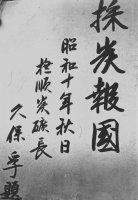 採炭報國
昭和十年秋日
撫順炭礦長
久保孚題